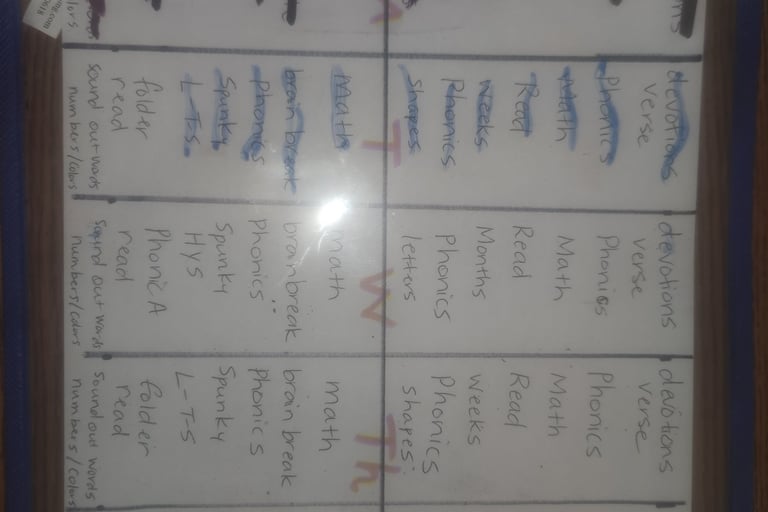 devotions
verse
Phonics
Math
Read
Weeks
Phonics
shapes
T
math
brain break
Phonics
Spunky
L-T-S
folder
read
sound out words
numbers/colors
devotions
verse
Phonics
Math
Read
Months
Phonics
letters
W
math
brain break
Phonics
Spunky
HYS
Phonic A
read
sound out words
numbers/colors
devotions
verse
Phonics
Math
Read
Weeks
Phonics
shapes
Th
math
brain break
Phonics
Spunky
L-T-S
folder
read
sound out words
numbers/colors